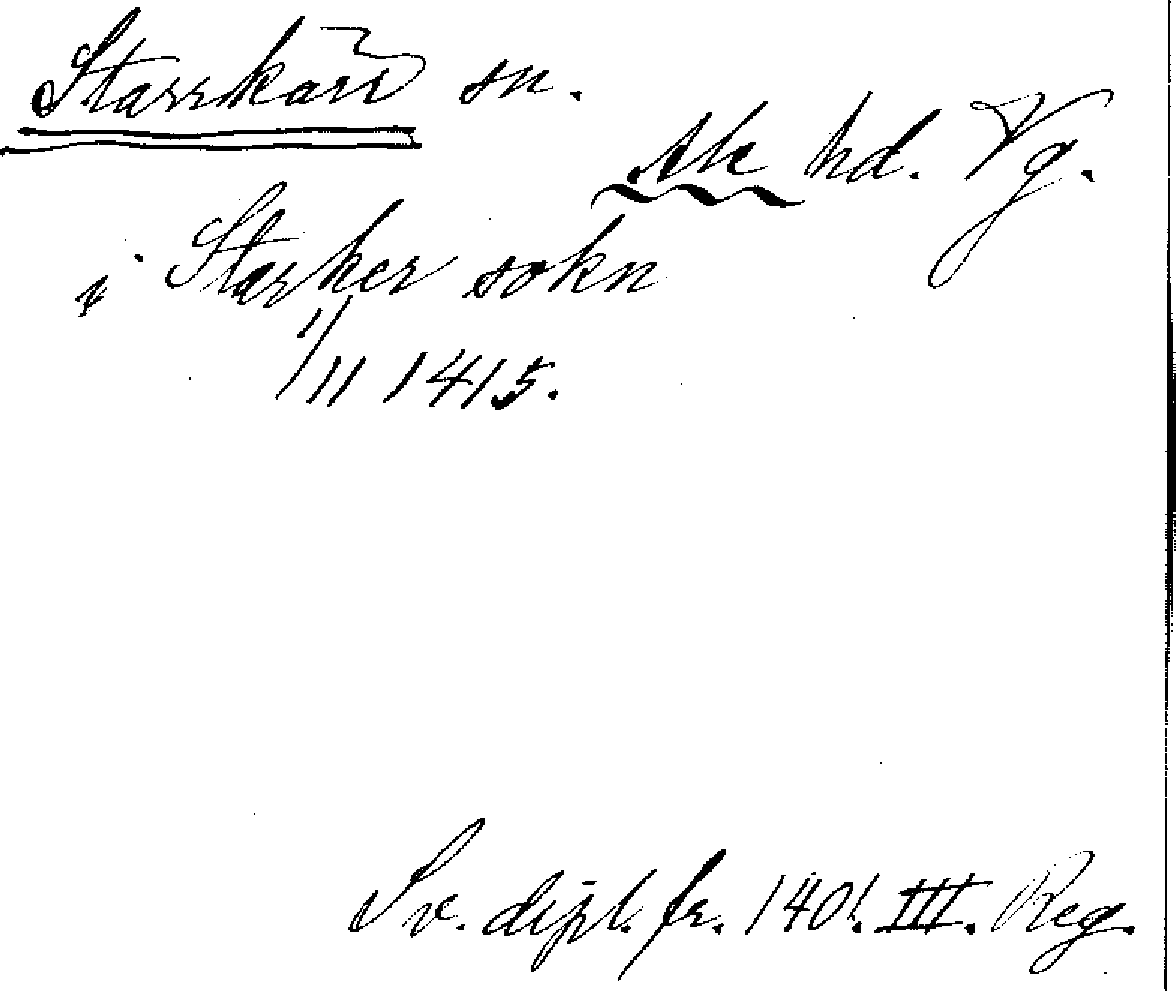 Starrkärr sn.
Ale hd. Vg.
i Starker sokn
1/11 1415.
Sv. dipl. fr. 1401. III. Reg.